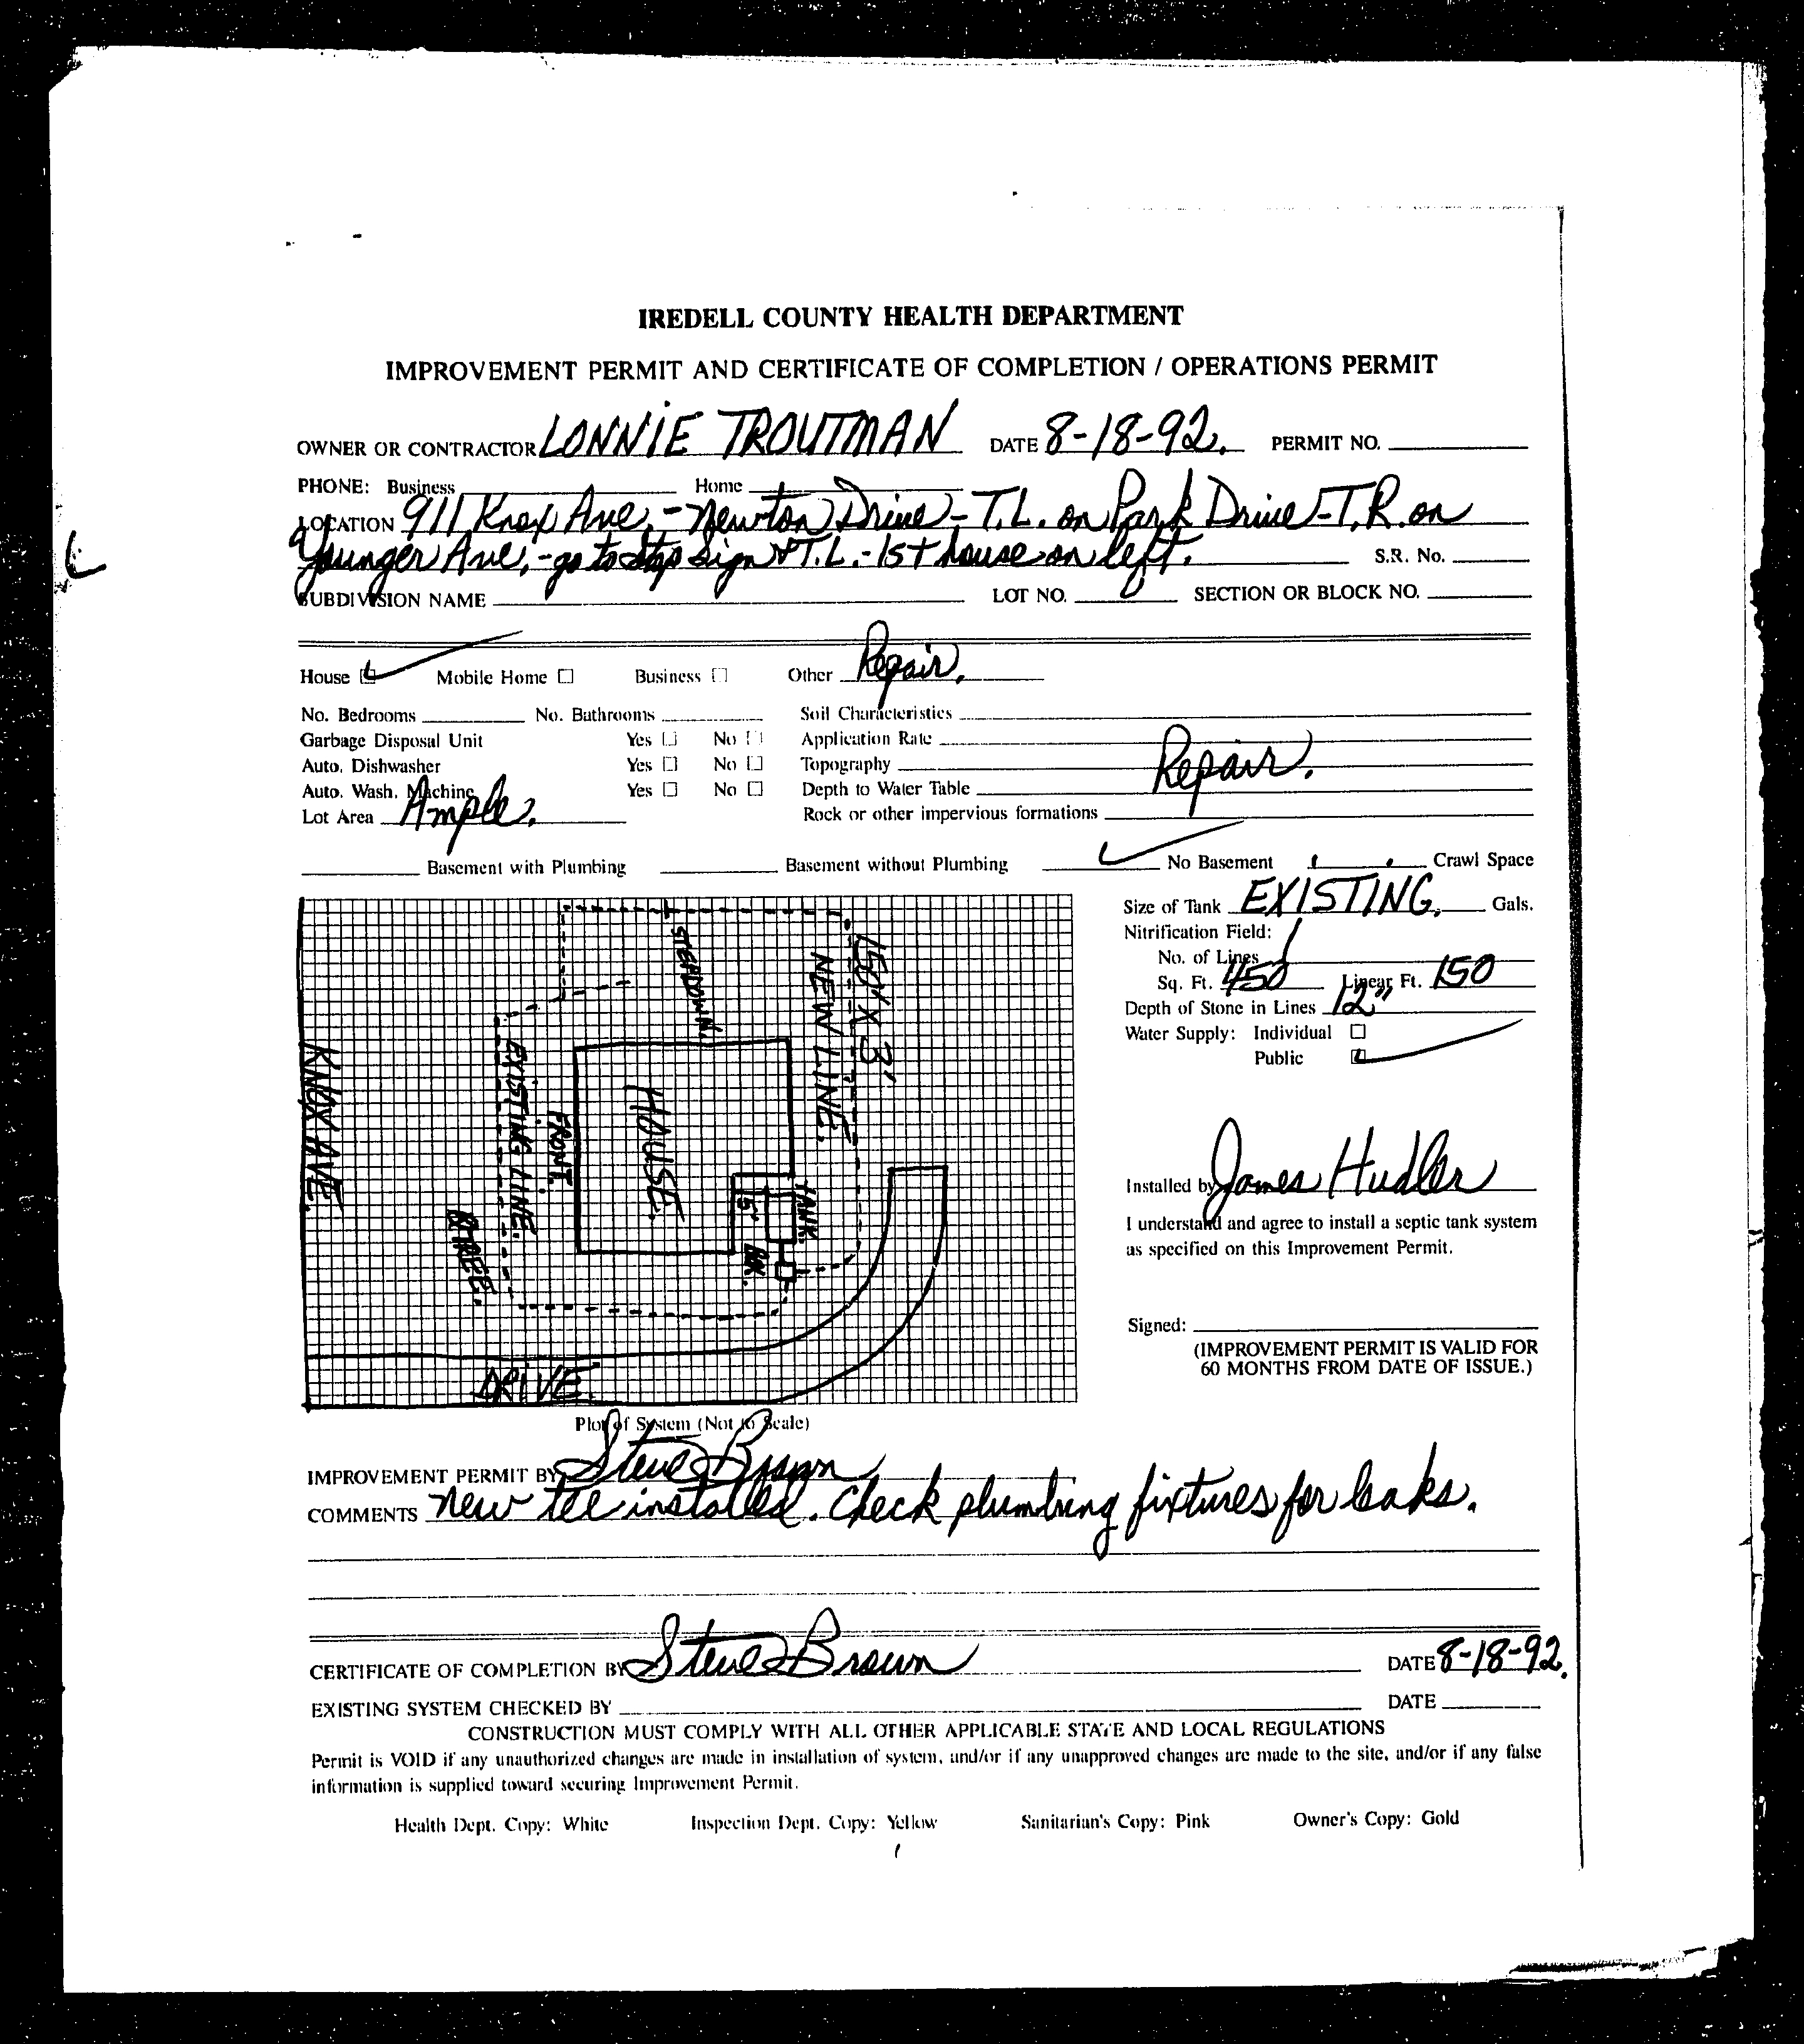 IREDELL COUNTY HEALTH DEPARTMENT
IMPROVEMENT PERMIT AND CERTIFICATE OF COMPLETION / OPERATIONS PERMIT
OWNER OR CONTRACTOR LONNIE TROUTMAN DATE 8-18-92. PERMIT NO.
PHONE: Business Home
LOCATION 911 Knox Ave. - Newton Drive - T.L. on Park Drive - T.R. on
Younger Ave. - go to stop sign & T.L. - 1st house on left. S.R. No.
SUBDIVISION NAME LOT NO. SECTION OR BLOCK NO.
House Mobile Home Business Other Repair.
No. Bedrooms No. Bathrooms Soil Characteristics
Garbage Disposal Unit Yes No Application Rate
Auto. Dishwasher Yes No Topography Repair.
Auto. Wash. Machine Yes No Depth to Water Table
Lot Area Ample. Rock or other impervious formations
Basement with Plumbing Basement without Plumbing No Basement Crawl Space
Size of Tank EXISTING. Gals.
Nitrification Field:
No. of Lines 1
Sq. Ft. 450 Linear Ft. 150
Depth of Stone in Lines 12"
Water Supply: Individual
Public
KNOX AVE.
EXISTING LINE.
FRONT.
HOUSE.
STEPDOWN
NEW LINE.
150' X 3'
TANK.
15'
BOX.
DRIVE.
Installed by James Hudler
I understand and agree to install a septic tank system
as specified on this Improvement Permit.
Signed:
(IMPROVEMENT PERMIT IS VALID FOR
60 MONTHS FROM DATE OF ISSUE.)
Plot of System (Not to Scale)
IMPROVEMENT PERMIT BY Steve Brown
COMMENTS New tee installed. Check plumbing fixtures for leaks.
CERTIFICATE OF COMPLETION BY Steve Brown DATE 8-18-92.
EXISTING SYSTEM CHECKED BY DATE
CONSTRUCTION MUST COMPLY WITH ALL OTHER APPLICABLE STATE AND LOCAL REGULATIONS
Permit is VOID if any unauthorized changes are made in installation of system, and/or if any unapproved changes are made to the site, and/or if any false
information is supplied toward securing Improvement Permit.
Health Dept. Copy: White Inspection Dept. Copy: Yellow Sanitarian's Copy: Pink Owner's Copy: Gold